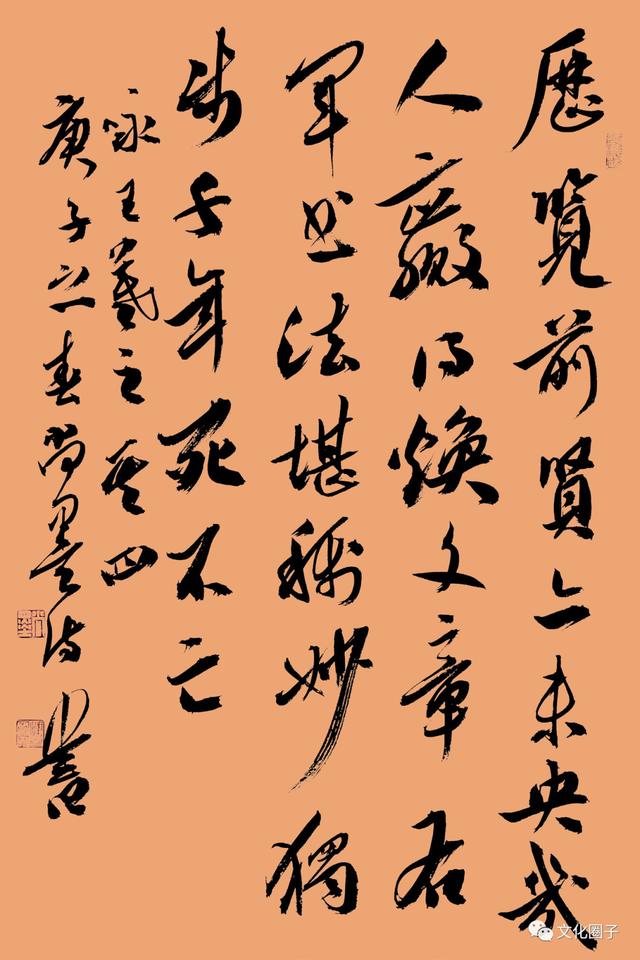 歷覽前賢亦未央幾
人贏得煥文章右
軍書法堪稱妙獨
步千年死不亡
詠王羲之其四
庚子之春尚墨詩書
文化圈子